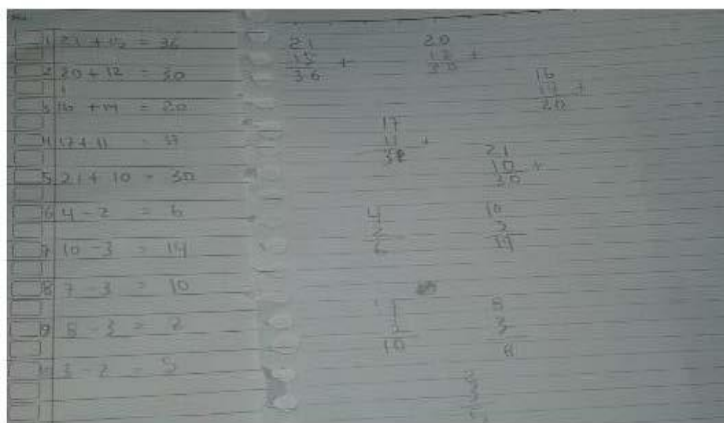 1 21 + 15 = 36
2 20 + 12 = 30
3 16 + 14 = 20
4 17 + 11 =
5 21 + 10 = 30
6 4 - 2 = 6
7 10 - 3 = 14
8 7 - 3 = 10
9 8 - 3 = 2
10 3 - 2 = 5
21
15 +
36
20
12 +
30
16
14 +
20
17
11 +
21
10 +
30
4
2
6
10
3
14
10
8
3
8